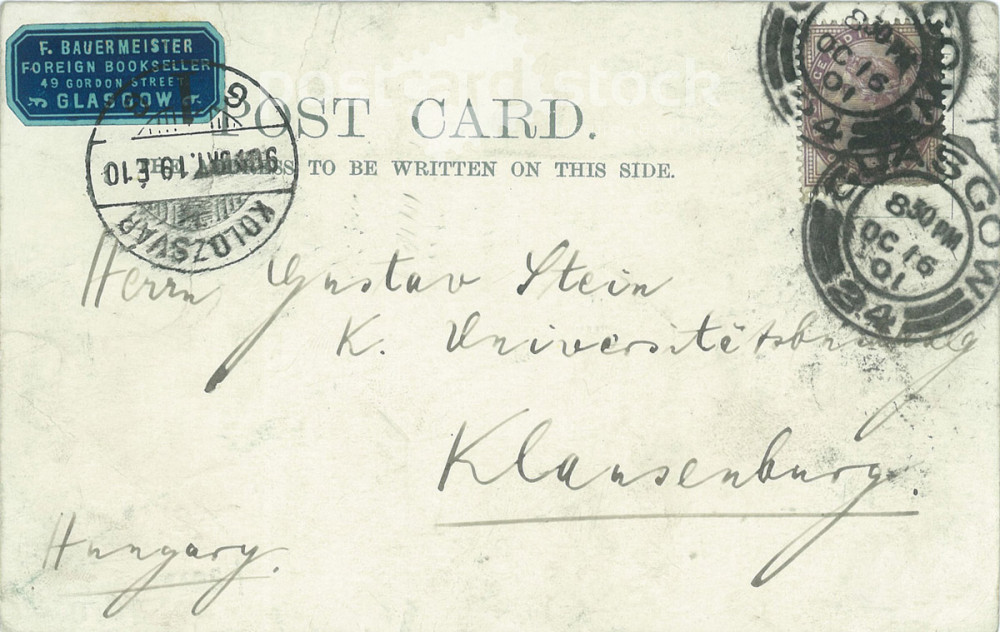 F. BAUERMEISTER
FOREIGN BOOKSELLER
49 GORDON STREET
GLASGOW
postcardstock
POST CARD.
THE ADDRESS TO BE WRITTEN ON THIS SIDE.
KOLOZSVÁR
GLASGOW
8 30 PM
OC 16
01
24
GLASGOW
8 30 PM
OC 16
01
24
Herrn Gustav Stein
K.
Klausenburg.
Hungary.